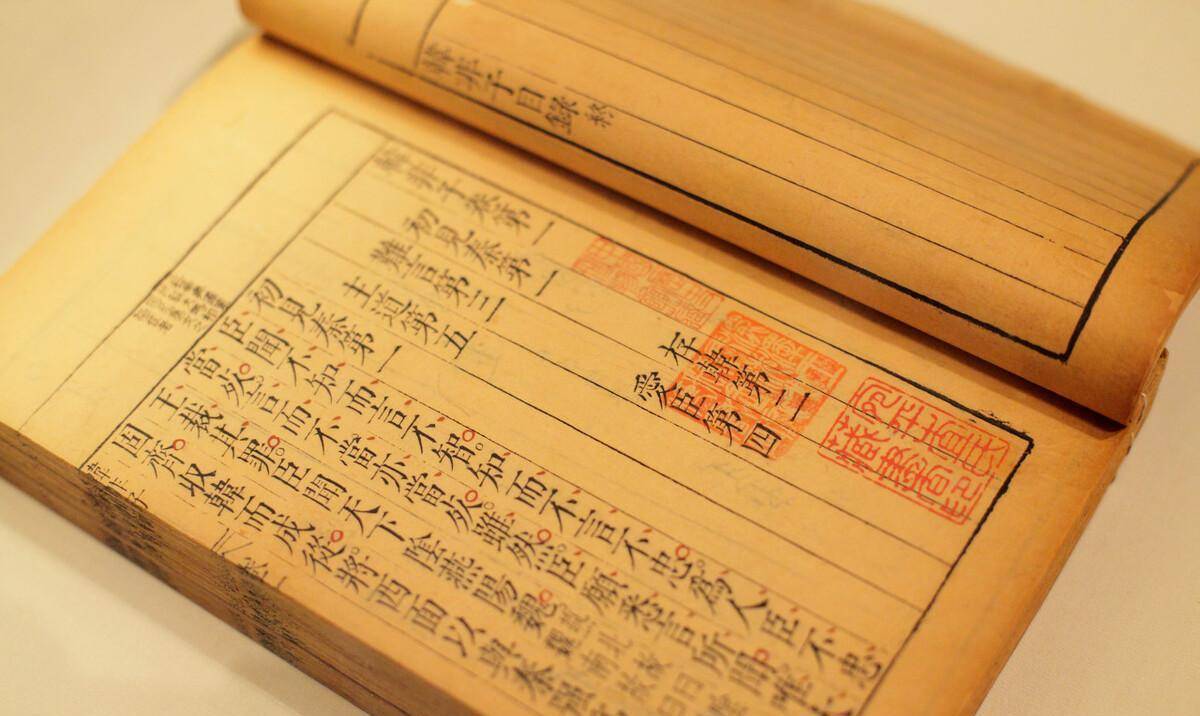 韓非子目錄終
韓非子卷第一
初見秦第一 存韓第二
難言第三 愛臣第四
主道第五
初見秦第一
臣聞不知而言不智知而不言不忠爲人臣不忠
當死言而不當亦當死雖然臣願悉言所聞唯
王裁其罪臣聞天下陰燕陽魏
固齊收韓而成從將西面以與秦強